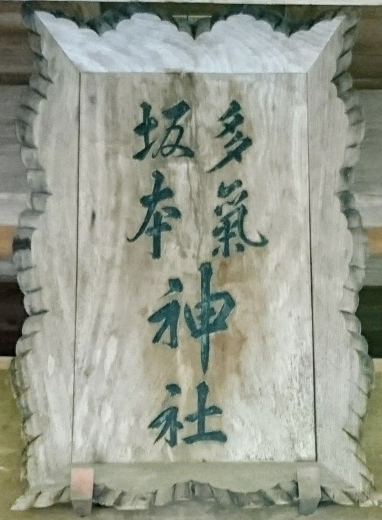 多氣
坂本
神社